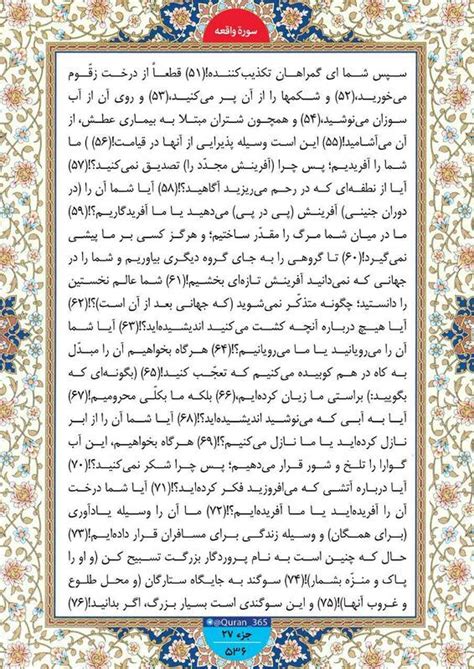 سورة واقعه
سپس شما ای گمراهان تکذیب‌کننده!(۵۱) قطعاً از درخت زقّوم
می‌خورید،(۵۲) و شکمها را از آن پر می‌کنید،(۵۳) و روی آن از آب
سوزان می‌نوشید،(۵۴) و همچون شتران مبتلا به بیماری عطش، از
آن می‌آشامید!(۵۵) این است وسیله پذیرایی از آنها در قیامت!(۵۶) ما
شما را آفریدیم؛ پس چرا (آفرینش مجدّد را) تصدیق نمی‌کنید؟!(۵۷)
آیا از نطفه‌ای که در رحم می‌ریزید آگاهید؟!(۵۸) آیا شما آن را (در
دوران جنینی) آفرینش (پی در پی) می‌دهید یا ما آفریدگاریم؟!(۵۹)
ما در میان شما مرگ را مقدّر ساختیم؛ و هرگز کسی بر ما پیشی
نمی‌گیرد!(۶۰) تا گروهی را به جای گروه دیگری بیاوریم و شما را در
جهانی که نمی‌دانید آفرینش تازه‌ای بخشیم!(۶۱) شما عالم نخستین
را دانستید؛ چگونه متذکّر نمی‌شوید (که جهانی بعد از آن است)؟!(۶۲)
آیا هیچ درباره آنچه کشت می‌کنید اندیشیده‌اید؟!(۶۳) آیا شما
آن را می‌رویانید یا ما می‌رویانیم؟!(۶۴) هرگاه بخواهیم آن را مبدّل
به کاه در هم کوبیده می‌کنیم که تعجب کنید!(۶۵) (بگونه‌ای که
بگویید:) براستی ما زیان کرده‌ایم،(۶۶) بلکه ما بکلّی محرومیم!(۶۷)
آیا به آبی که می‌نوشید اندیشیده‌اید؟!(۶۸) آیا شما آن را از ابر
نازل کرده‌اید یا ما نازل می‌کنیم؟!(۶۹) هرگاه بخواهیم، این آب
گوارا را تلخ و شور قرار می‌دهیم؛ پس چرا شکر نمی‌کنید؟!(۷۰)
آیا درباره آتشی که می‌افروزید فکر کرده‌اید؟!(۷۱) آیا شما درخت
آن را آفریده‌اید یا ما آفریده‌ایم؟!(۷۲) ما آن را وسیله یادآوری
(برای همگان) و وسیله زندگی برای مسافران قرار داده‌ایم!(۷۳)
حال که چنین است به نام پروردگار بزرگت تسبیح کن (و او را
پاک و منزّه بشمار)!(۷۴) سوگند به جایگاه ستارگان (و محل طلوع
و غروب آنها)!(۷۵) و این سوگندی است بسیار بزرگ، اگر بدانید!(۷۶)
@Quran_365
جزء ۲۷
۵۳۶